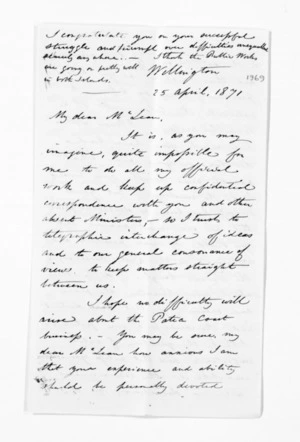 I congratulate you on your successful
struggle and triumph over difficulties
I think the Public Works
are going on pretty well
in both Islands.
Wellington
1969
25 April, 1871
My dear McLean,
It is, as you may
imagine, quite impossible for
me to do all my official
work and keep up confidential
correspondence with you and other
absent Ministers, — so I trust to
telegraphic interchange of ideas
and to our general consonance of
views to keep matters straight
between us.
I hope no difficulty will
arise about the Patea Coast
business. — You may be sure, my
dear McLean how anxious I am
that your experience and ability
should be personally devoted